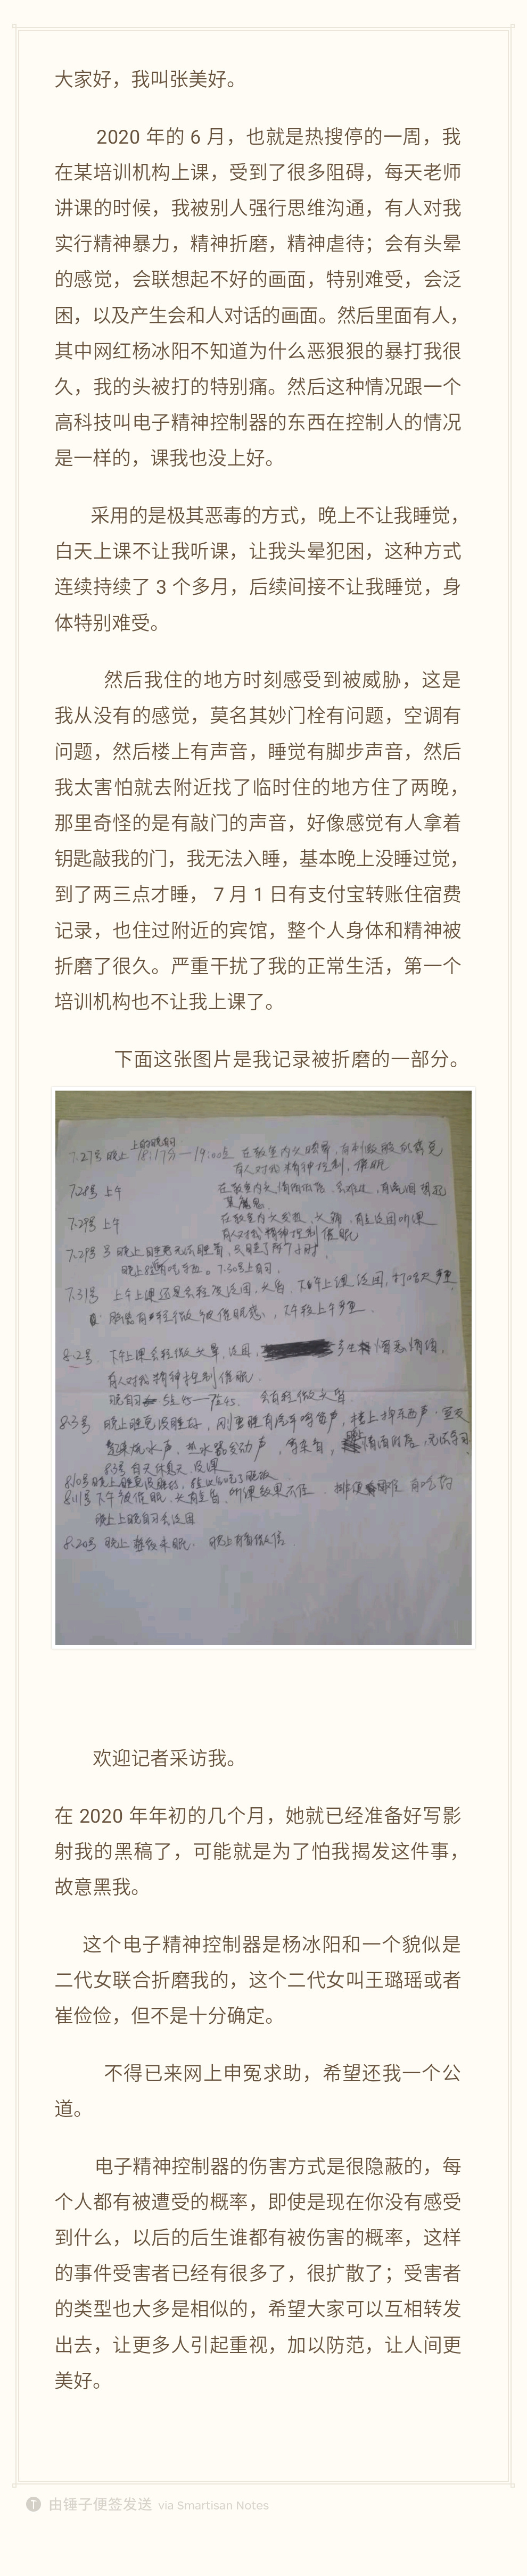 大家好，我叫张美好。
2020 年的 6 月，也就是热搜停的一周，我
在某培训机构上课，受到了很多阻碍，每天老师
讲课的时候，我被别人强行思维沟通，有人对我
实行精神暴力，精神折磨，精神虐待；会有头晕
的感觉，会联想起不好的画面，特别难受，会泛
困，以及产生会和人对话的画面。然后里面有人，
其中网红杨冰阳不知道为什么恶狠狠的暴打我很
久，我的头被打的特别痛。然后这种情况跟一个
高科技叫电子精神控制器的东西在控制人的情况
是一样的，课我也没上好。
采用的是极其恶毒的方式，晚上不让我睡觉，
白天上课不让我听课，让我头晕犯困，这种方式
连续持续了 3 个多月，后续间接不让我睡觉，身
体特别难受。
然后我住的地方时刻感受到被威胁，这是
我从没有的感觉，莫名其妙门栓有问题，空调有
问题，然后楼上有声音，睡觉有脚步声音，然后
我太害怕就去附近找了临时住的地方住了两晚，
那里奇怪的是有敲门的声音，好像感觉有人拿着
钥匙敲我的门，我无法入睡，基本晚上没睡过觉，
到了两三点才睡， 7 月 1 日有支付宝转账住宿费
记录，也住过附近的宾馆，整个人身体和精神被
折磨了很久。严重干扰了我的正常生活，第一个
培训机构也不让我上课了。
下面这张图片是我记录被折磨的一部分。
上的晚自习
7.27号 晚上 18:17分—19:00点 在教室内头晕
有人对我精神控制、催眠
7.28号 上午 在教室内头
7.29号 上午 在教室内 有人对我精神控制 催眠
7.29号 晚上
7.30号上自习.
7.31号 上午上课还是会轻度泛困, 头晕. 下午上课泛困, 打哈欠
轻微被催眠感, 下午较上午
8.2号. 下午上课会轻微头晕, 泛困,
有人对我精神控制催眠.
晚自习 会有轻微头晕.
8.3号 晚上睡觉没睡好, 刚要睡有汽车鸣笛声, 楼上掉东西声.
烧水声, 热水器发动声
8.3号 白天休息天. 没课
8.10号晚上睡觉没睡好,
8.11号下午被催眠. 听课效果不佳.
晚上上晚自习会泛困
8.20号 晚上 整夜未眠. 晚上有看微信
欢迎记者采访我。
在 2020 年年初的几个月，她就已经准备好写影
射我的黑稿了，可能就是为了怕我揭发这件事，
故意黑我。
这个电子精神控制器是杨冰阳和一个貌似是
二代女联合折磨我的，这个二代女叫王璐瑶或者
崔俭俭，但不是十分确定。
不得已来网上申冤求助，希望还我一个公
道。
电子精神控制器的伤害方式是很隐蔽的，每
个人都有被遭受的概率，即使是现在你没有感受
到什么，以后的后生谁都有被伤害的概率，这样
的事件受害者已经有很多了，很扩散了；受害者
的类型也大多是相似的，希望大家可以互相转发
出去，让更多人引起重视，加以防范，让人间更
美好。
T 由锤子便签发送 via Smartisan Notes